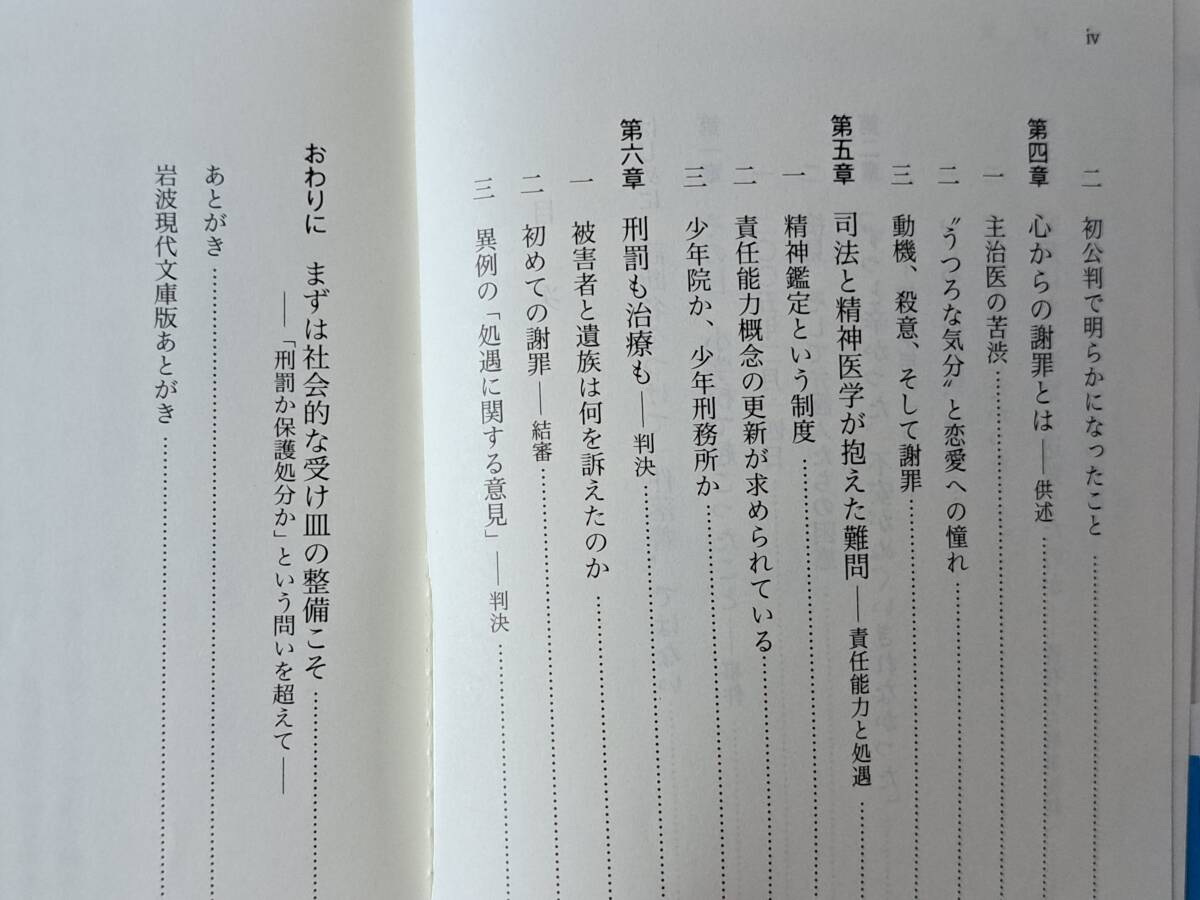 iv
二 初公判で明らかになったこと
第四章 心からの謝罪とは——供述
一 主治医の苦渋
二 〝うつろな気分〟と恋愛への憧れ
三 動機、殺意、そして謝罪
第五章 司法と精神医学が抱えた難問——責任能力と処遇
一 精神鑑定という制度
二 責任能力概念の更新が求められている
三 少年院か、少年刑務所か
第六章 刑罰も治療も——判決
一 被害者と遺族は何を訴えたのか
二 初めての謝罪——結審
三 異例の「処遇に関する意見」——判決
おわりに まずは社会的な受け皿の整備こそ
——「刑罰か保護処分か」という問いを超えて——
あとがき
岩波現代文庫版あとがき